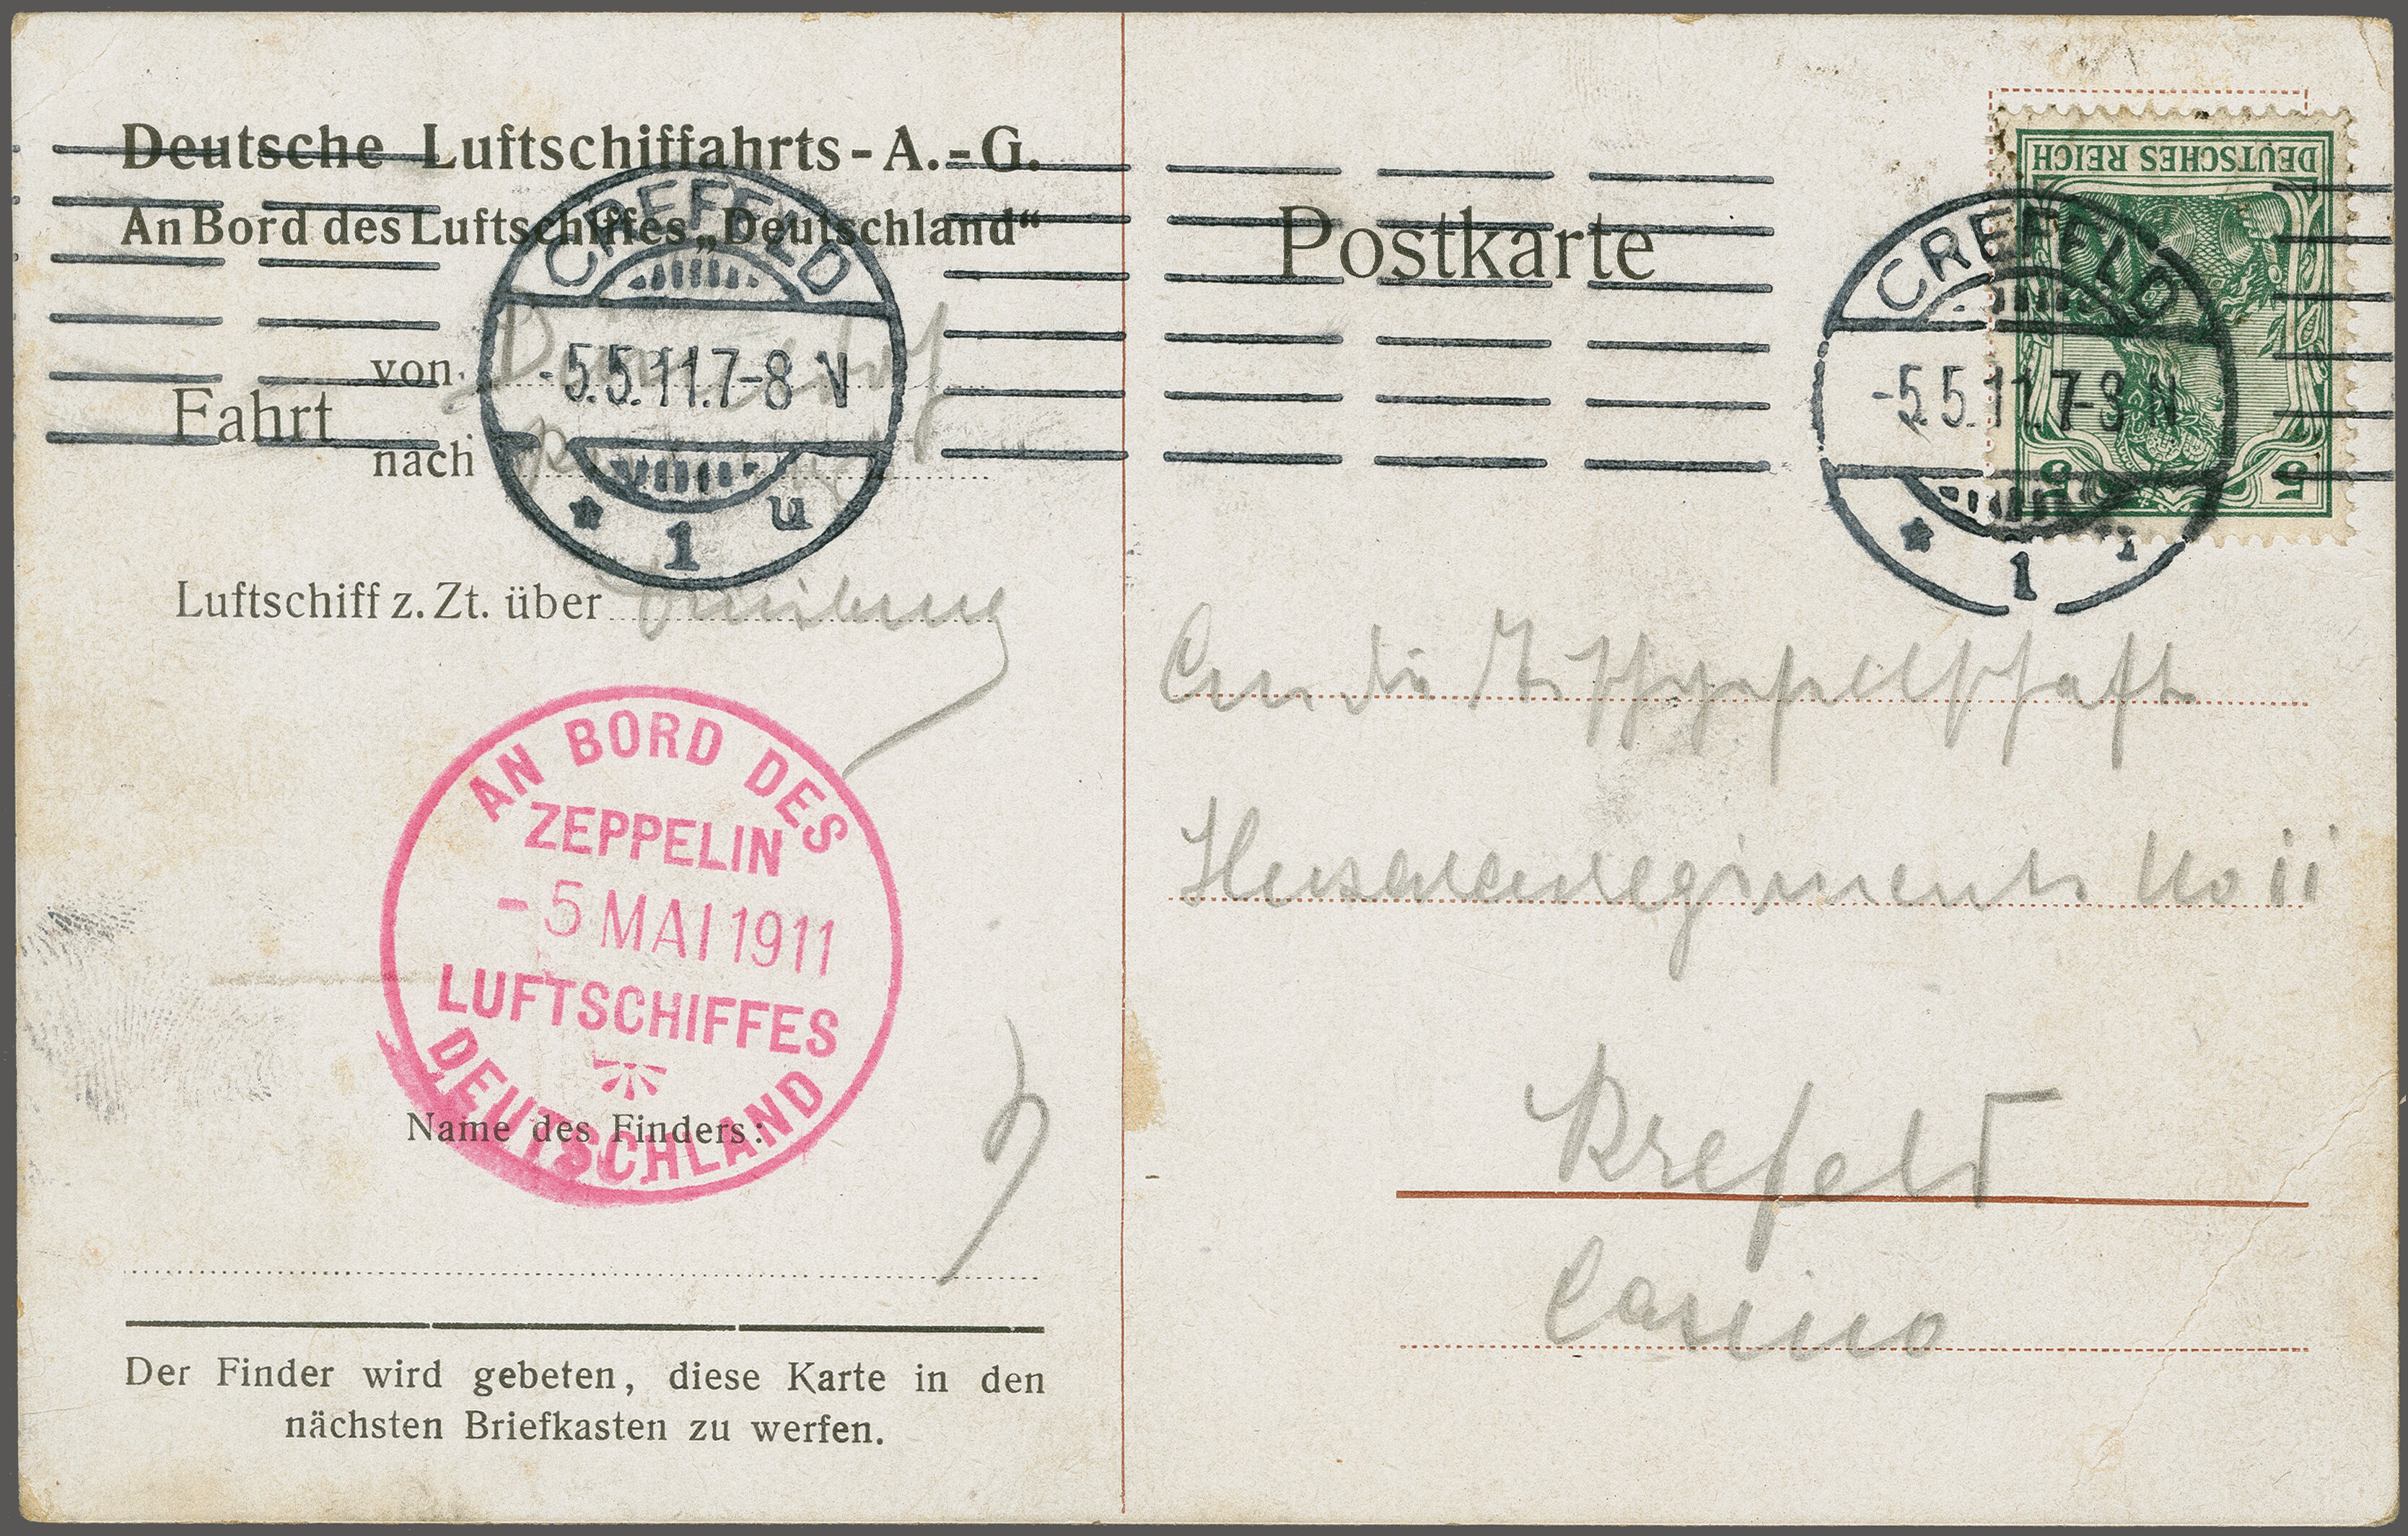 Deutsche Luftschiffahrts-A.-G.
An Bord des Luftschiffes „Deutschland“
CREFELD
-5.5.11.7-8 N
* 1 u
Fahrt
von Düsseldorf
nach
Luftschiff z. Zt. über Duisburg
AN BORD DES
ZEPPELIN
- 5 MAI 1911
LUFTSCHIFFES
DEUTSCHLAND
Name des Finders:
Der Finder wird gebeten, diese Karte in den
nächsten Briefkasten zu werfen.
Postkarte
DEUTSCHES REICH
5 5
CREFELD
-5.5.11.7-8 N
* 1
An die
Husarenregiments No 11
Krefeld
Casino